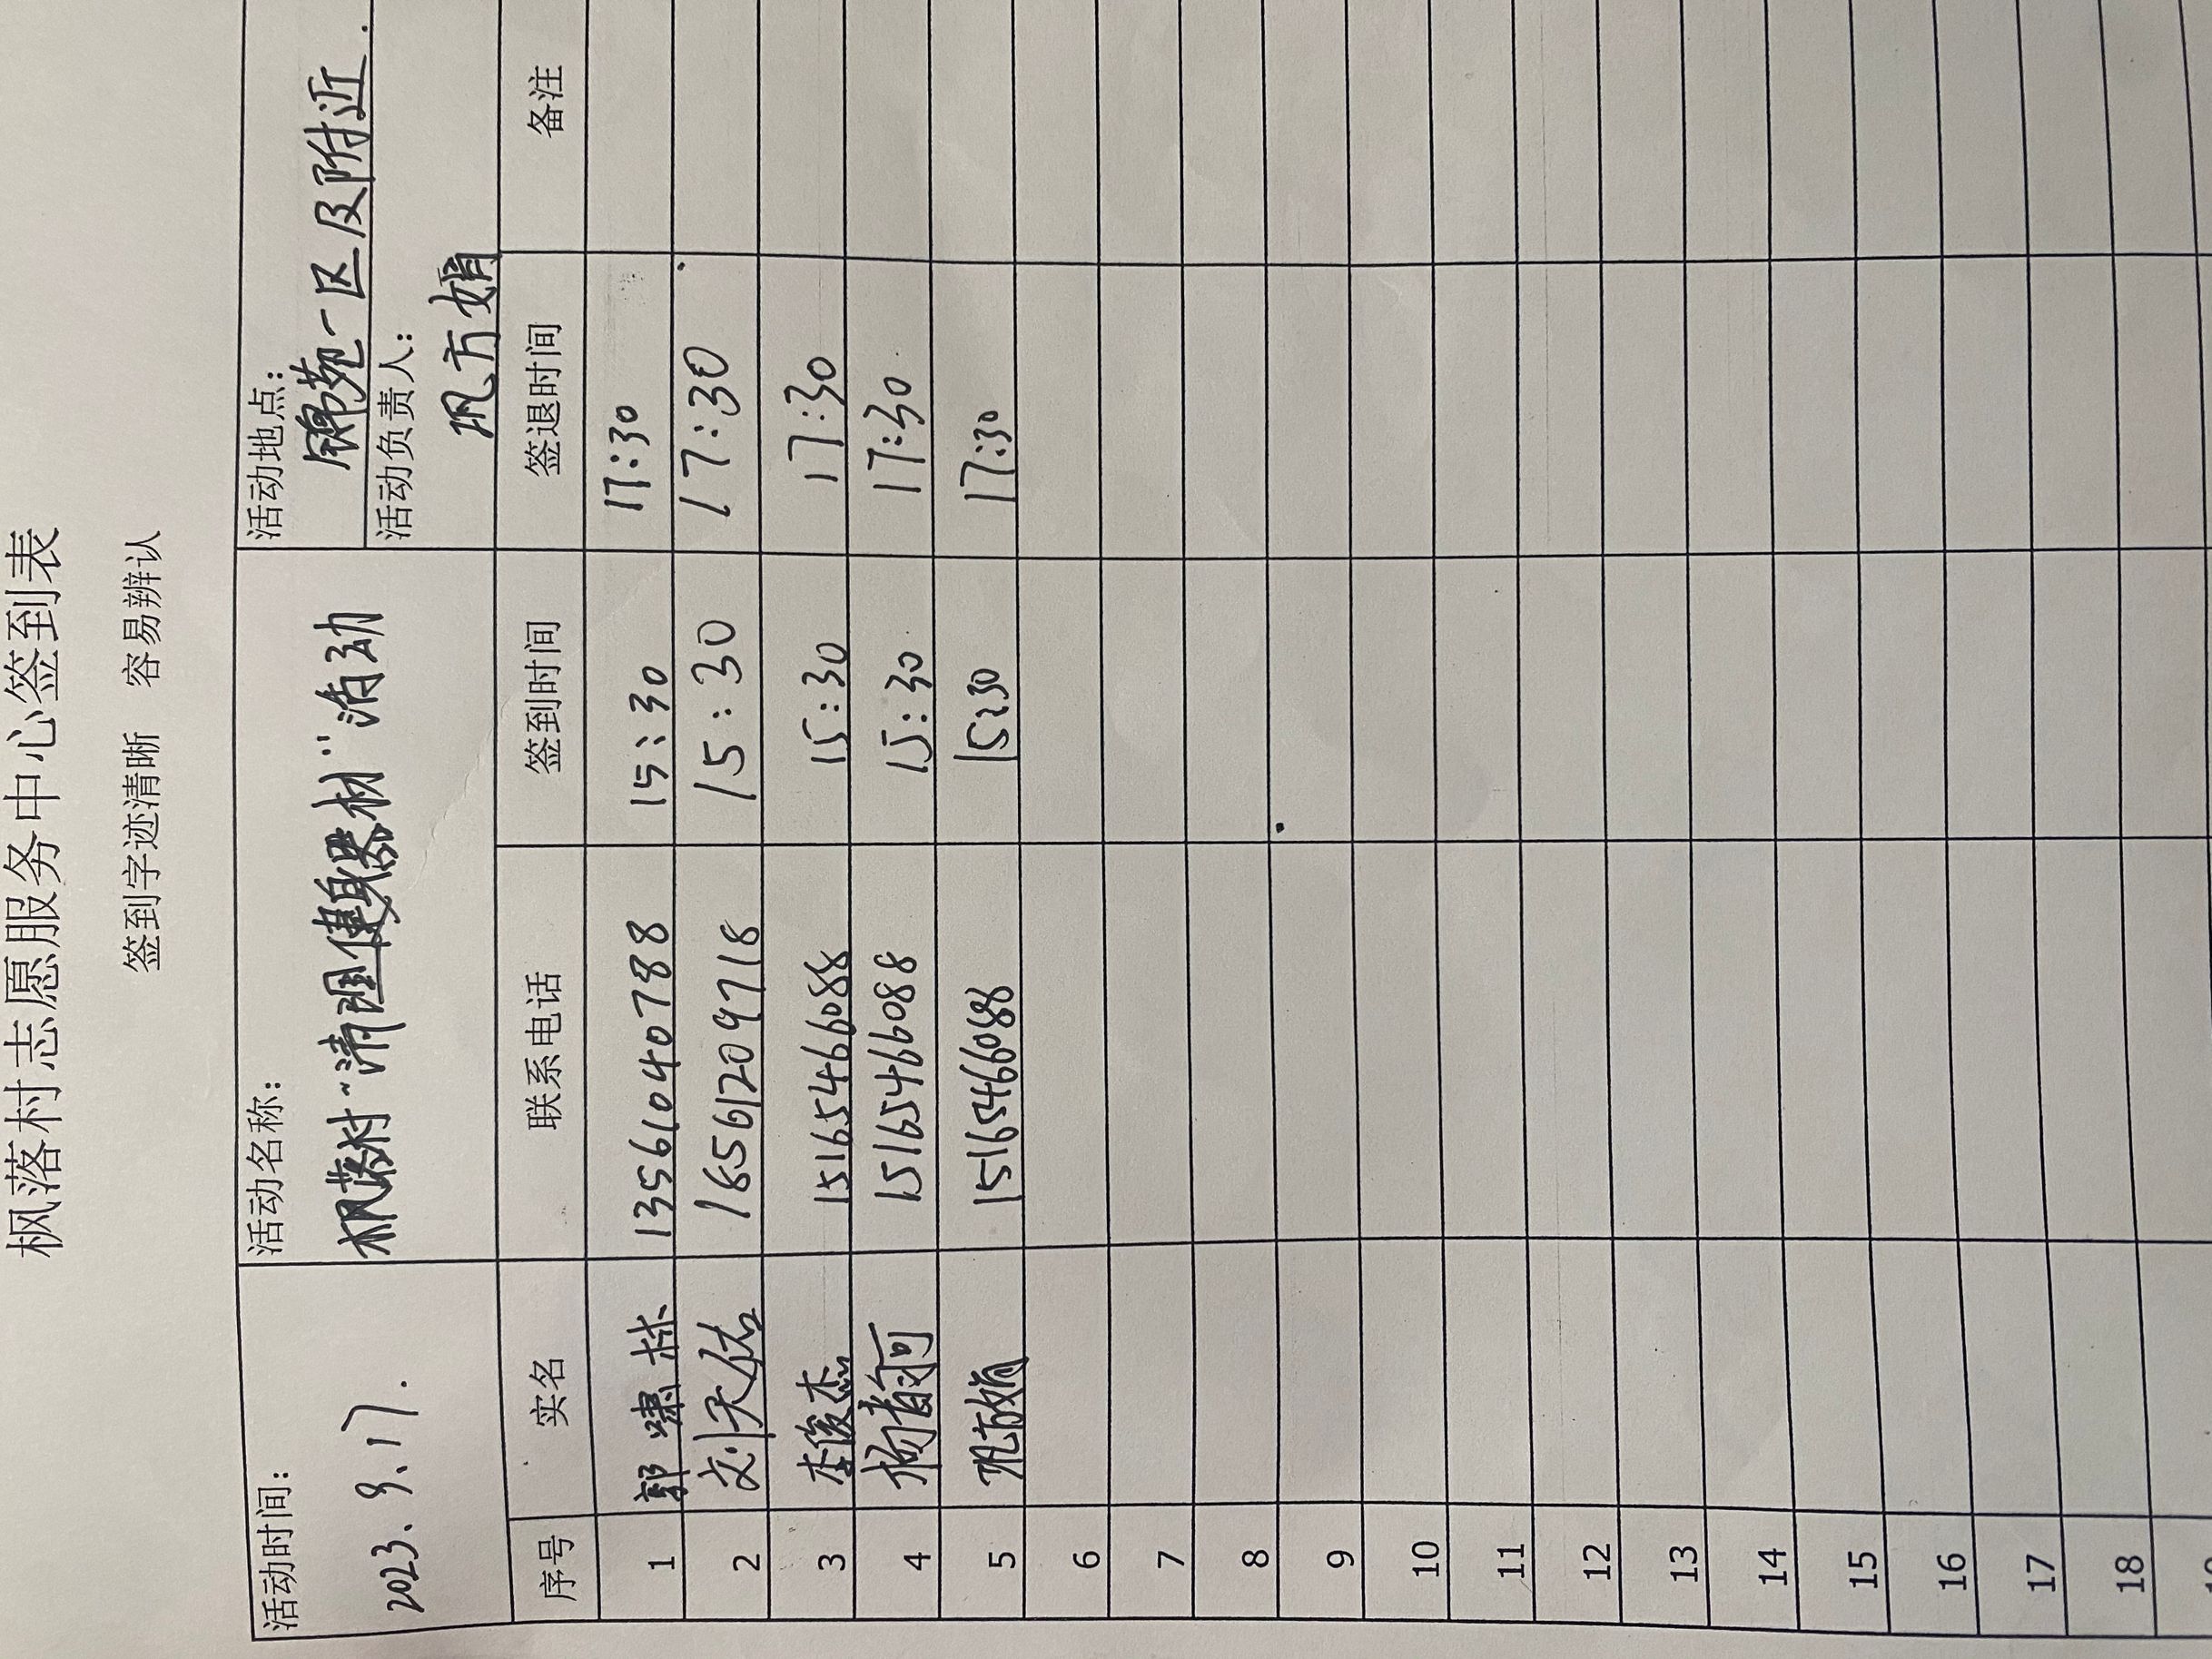 枫落村志愿服务中心签到表
签到字迹清晰 容易辨认
活动时间: 活动名称: 活动地点:
2023.9.17. 枫落村“清理健身器材”活动 锦苑一区及附近.
活动负责人:
巩方娟
序号 实名 联系电话 签到时间 签退时间 备注
1 郭啸林 13561040788 15:30 17:30
2 刘天佑 18561209718 15:30 17:30
3 李俊杰 15165466088 15:30 17:30
4 杨 15165466088 15:30 17:30
5 巩方娟 15165466088 15:30 17:30
6
7
8
9
10
11
12
13
14
15
16
17
18